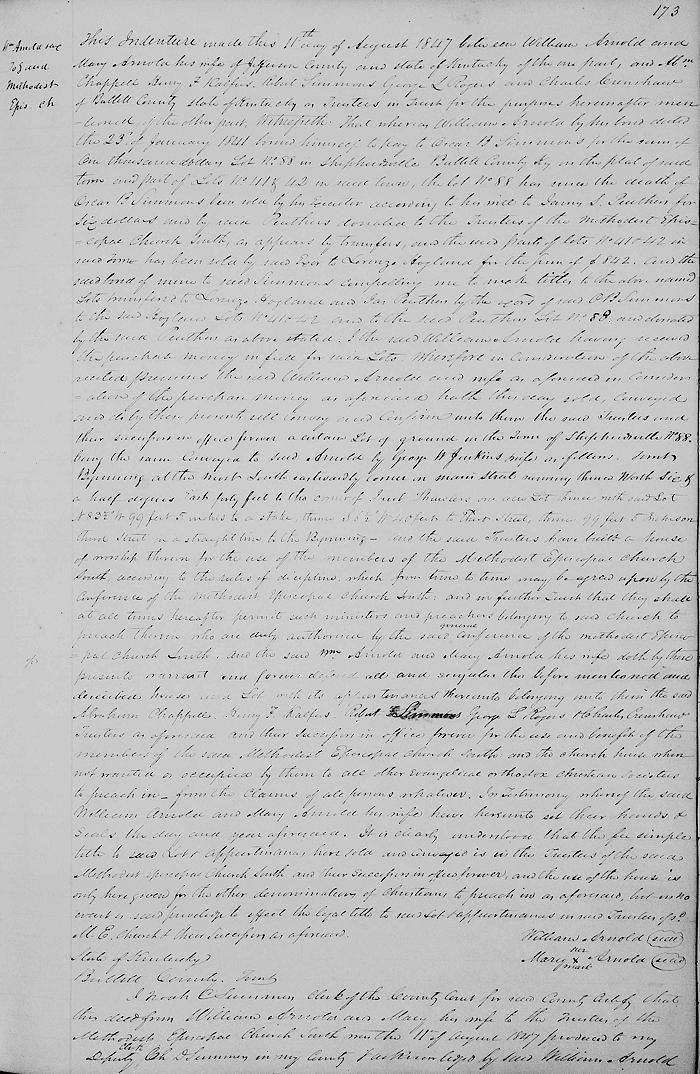 173
Wm Arnold &c
To Deed
Methodist
Epis. Ch
This Indenture made this 11th day of August 1847 between William Arnold and
Mary Arnold his wife of Jefferson County and state of Kentucky of the one part, and Abm
Chappell Henry F. Kalfus, Robt Simmons George L Rogers and Charles Crenshaw
of Bullitt County state of Kentucky as Trustees in Trust for the purposes hereinafter men-
-tioned of the other part, Witnesseth: That whereas William Arnold by his bond dated
the 23d of January 1841 bound himself to to Oscar B Simmons for the sum of
One thousand dollars Lot No 88 in Shepherdsville Bullitt County Ky on the plat of said
town and part of Lots No 41 & 42 in said town, the lot No 88 has since the death of
Oscar B Simmons been sold by his Executor according to his will to James S. Penthers for
Six dollars and by said Penthers donated to the Trustees of the Methodist Epis-
=copal Church South, as appears by transfers, and the said part of lots No 41 & 42 in
said Town has been sold by said Exor to Lorenzo Hogland for the sum of $842. And the
said bond of mine to said Simmons compelling me to make titles to the above named
Lots transferd to Lorenzo Hogland and Jas Penthers by the exor of said O B Simmons
to the said Hogland Lots No 41 & 42 and to the said Penthers Lot No 88. and donated
by the said Penthers as above stated. I the said William Arnold having received
the purchase money in full for said Lots. Wherefore in Consideration of the above
recited premises the said William Arnold and wife as aforesaid in consider-
-ation of the purchase money as aforesaid hath this day sold, Conveyed
and do by these presents sell Convey and Confirm unto them the said Trustees and
their successors in office forever a certain Lot of ground in the Town of Shepherdsville No 88.
being the same Conveyed to said Arnold by George W Jenkins & wife as follows. Towit
Beginning at the most South eastwardly corner on main Street running thence North Six &
a half degrees East forty feet to the corner of lot thence with said Lot
N 83½ W 99 feet 5 inches to a stake, thence S 6½ W 40 feet to Street, thence 99 feet 5 inches on
Street in a straight line to the Beginning - And the said Trustees have built a house
of worship thereon for the use of the members of the Methodist Episcopal Church
South, according to the rules of dicipline, which from time to time may be agreed upon by the
Conference of the Methodist Episcopal Church South: and in further Trust that they shall
at all times hereafter permit such ministers and preachers belonging to said church to
preach therein who are duly authorised by the said general Conference of the methodist Episco-
=pal Church South. And the said Wm Arnold and Mary Arnold his wife doth by these
presents warrant and forever defend all and singular the before mentioned and
described house and Lot with its appurtenances thereunto belonging unto them the said
Abraham Chappell. Henry F. Kalfus. Robert Simmons George L Rogers & Charles Crenshaw
Trustees as aforesaid and their Successors in office forever for the use and benefit of the
members of the said Methodist Episcopal Church South and the church house when
not wanted or occupied by them to all other Evangelical orthodox christian Societies
to preach in - from the claims of all persons whatever. In Testimony whereof the said
William Arnold and Mary Arnold his wife have hereunto set their hands &
Seals the day and year aforesaid. It is clearly understood that the fee simple
title to said Lot & appurtenances here sold and conveyed is in the Trustees of the said
Methodist Episcopal Church South and their Successors in office forever, and the use of the house is
only here given for the other denominations of Christians to preach in as aforesaid, but in no
event is said priviledge to effect the legal title to said Lot & appurtenances in said Trustees of sd
M E. Church & their Successors as aforesaid.
William Arnold (seal)
Mary her X mark Arnold (seal)
State of Kentucky
Bullitt County Towit
I Noah C Summers clerk of the County Court for said County Certify that
this deed from William Arnold and Mary his wife to the Trustees of the
Methodist Episcopal Church South was the 11th of August 1847 produced to my
Deputy Clerk Ch D Summers in my County & acknowledged by said William Arnold